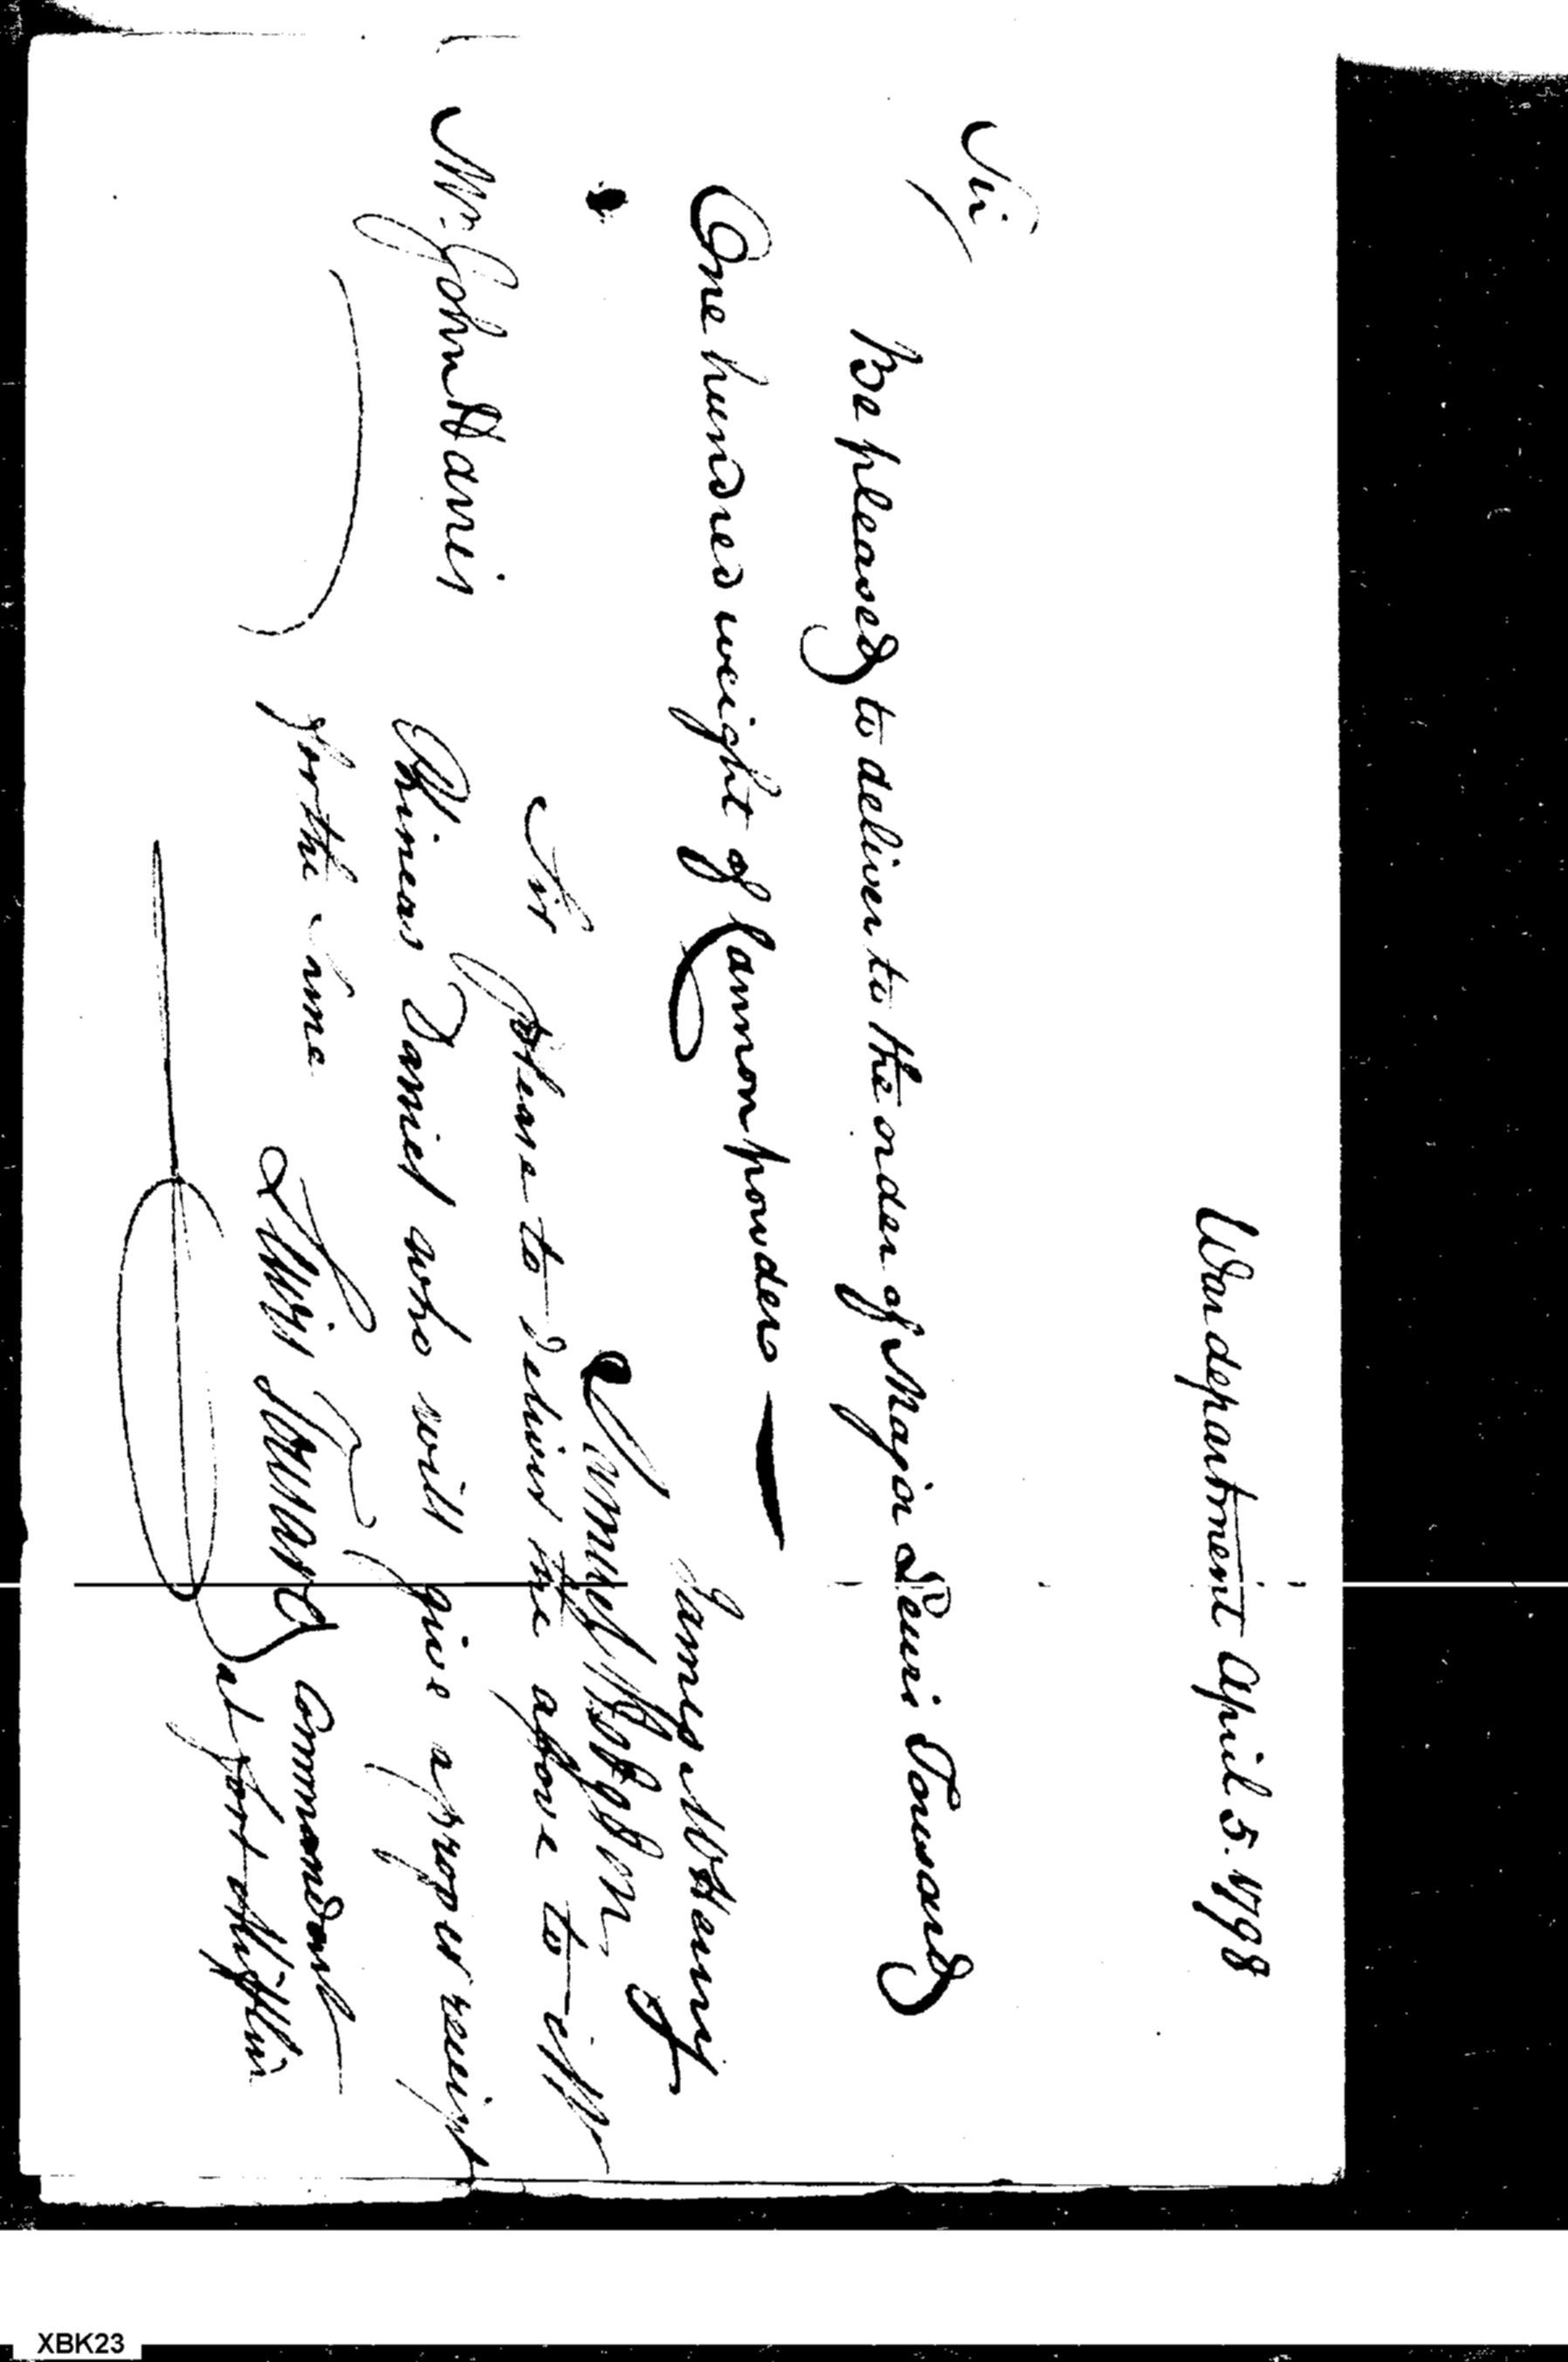 War department April 5. 1798
Sir
Be pleased to deliver to the order of Major Lewis Tousard
One hundred weight of Cannon powder
James McHenry
Mr. John Harris
Samuel Hodgdon
Sir please to deliver the above to
Phineas Daniel who will give a proper receipt
for the same
Lewis Tousard Commandant
at fort Mifflin
XBK23